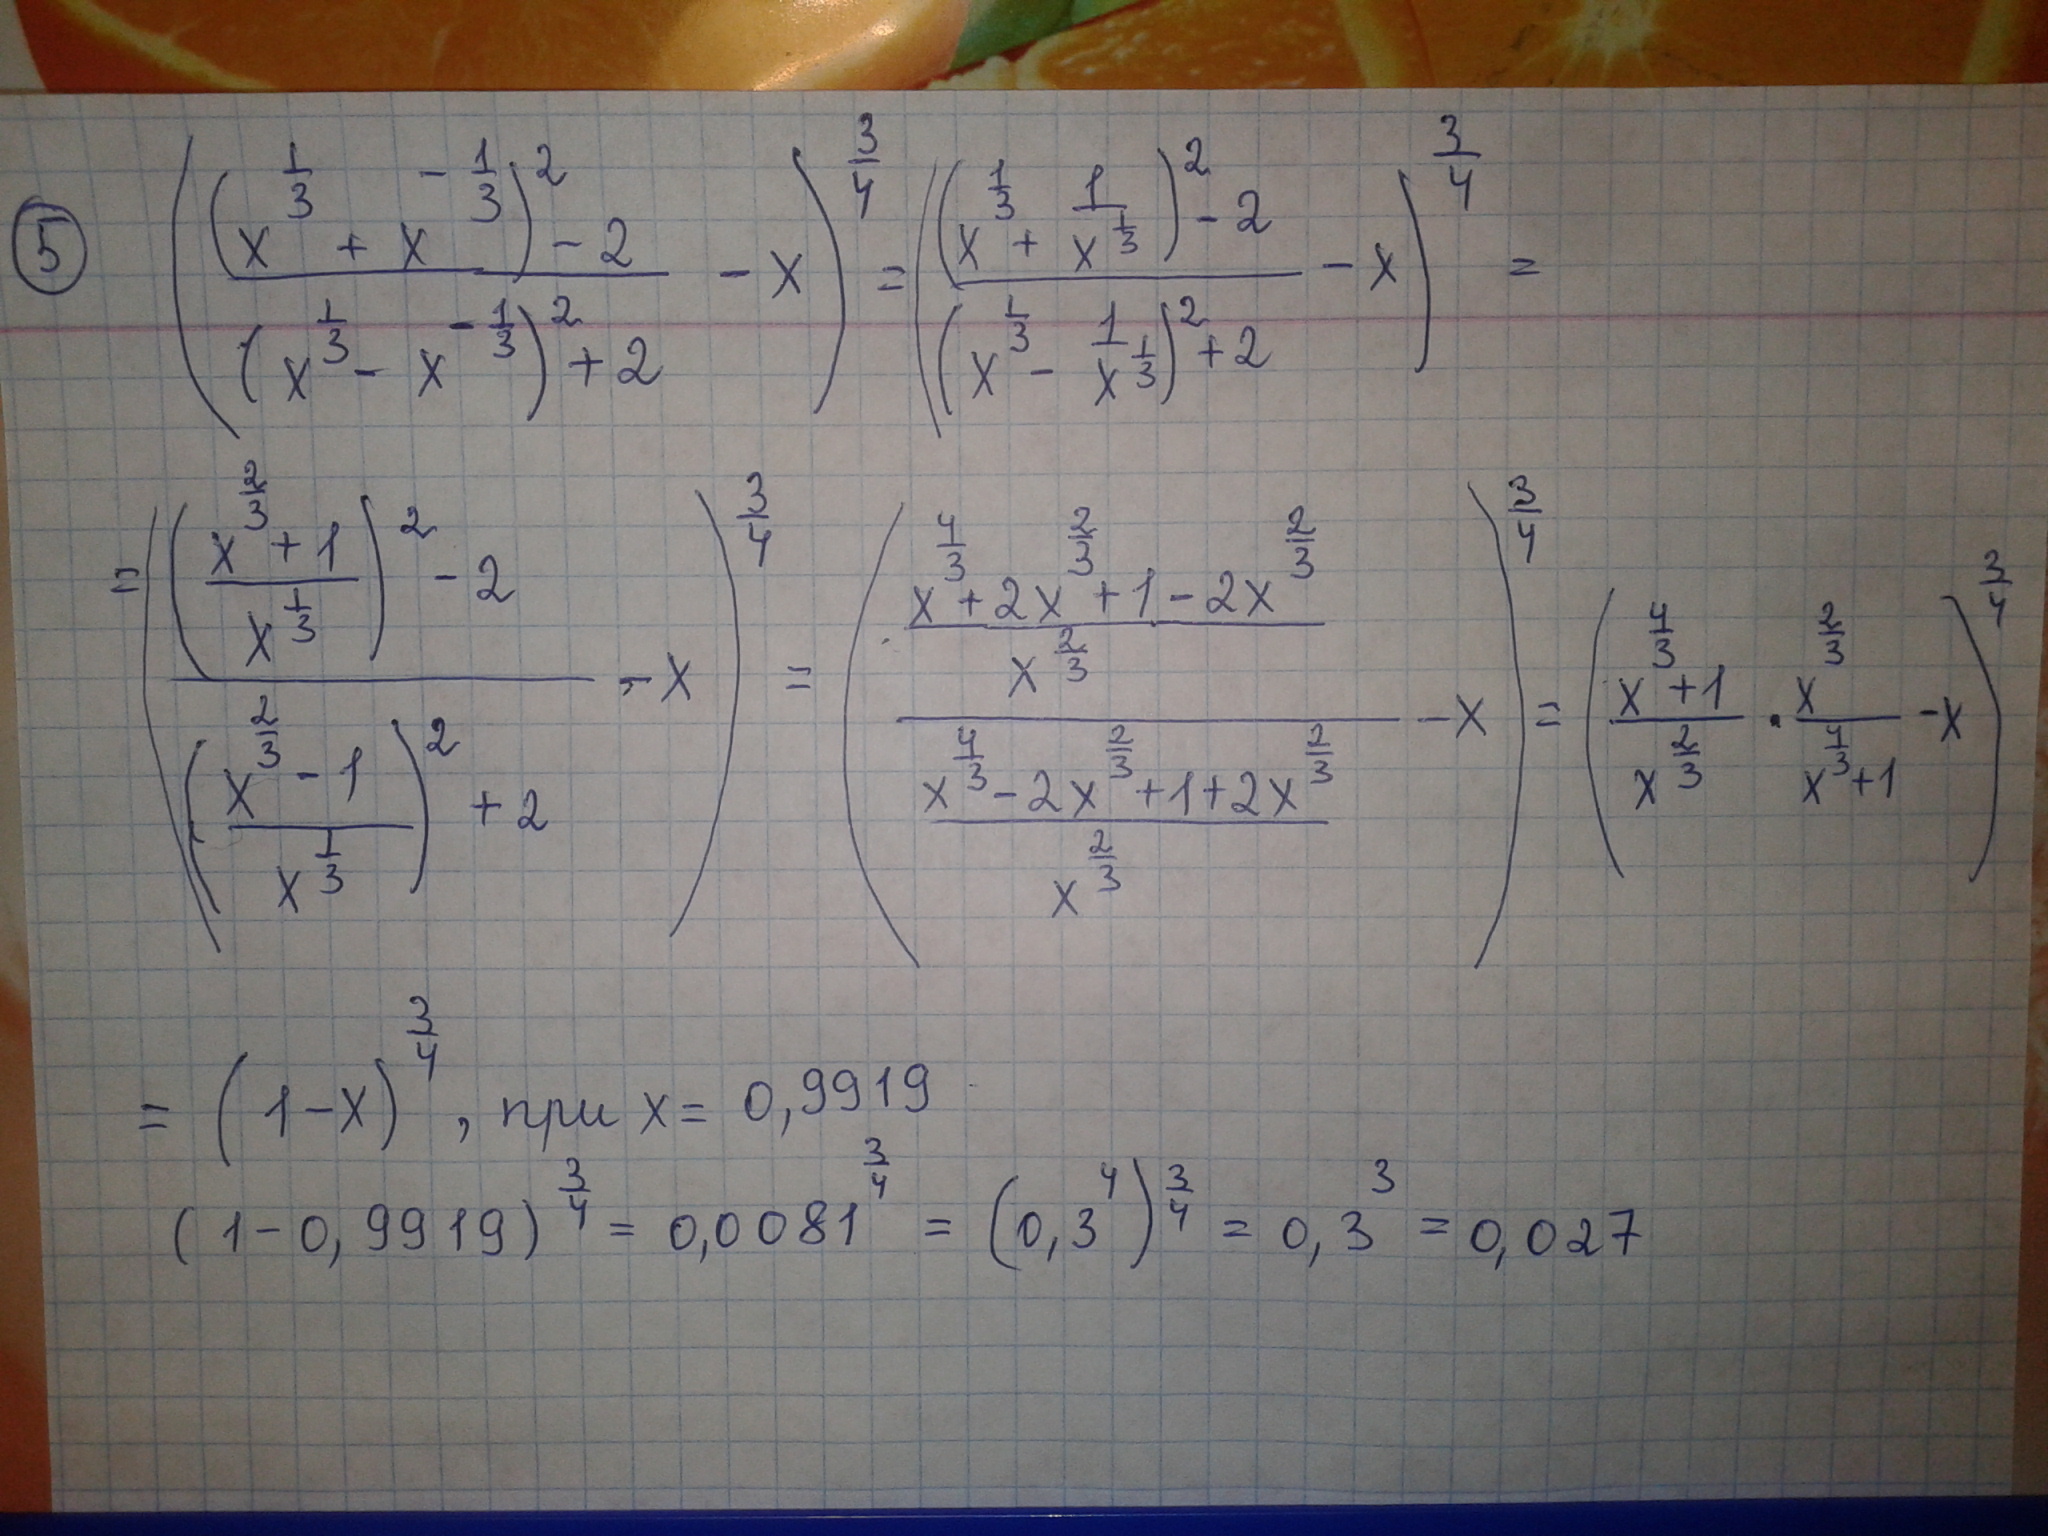 ⑤ (((x^(1/3) + x^(-1/3))^2 - 2)/((x^(1/3) - x^(-1/3))^2 + 2) - x)^(3/4) = (((x^(1/3) + 1/x^(1/3))^2 - 2)/((x^(1/3) - 1/x^(1/3))^2 + 2) - x)^(3/4) =
= ((((x^(2/3) + 1)/x^(1/3))^2 - 2)/(((x^(2/3) - 1)/x^(1/3))^2 + 2) - x)^(3/4) = (((x^(4/3) + 2x^(2/3) + 1 - 2x^(2/3))/x^(2/3))/((x^(4/3) - 2x^(2/3) + 1 + 2x^(2/3))/x^(2/3)) - x)^(3/4) = ((x^(4/3) + 1)/x^(2/3) · x^(2/3)/(x^(4/3) + 1) - x)^(3/4)
= (1 - x)^(3/4), при x = 0,9919
(1 - 0,9919)^(3/4) = 0,0081^(3/4) = (0,3^4)^(3/4) = 0,3^3 = 0,027